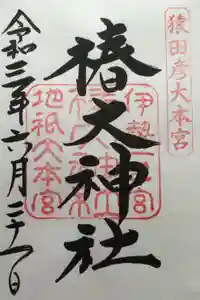 猿田彦大本宮
伊勢一宮
椿大神社
地祇大本宮
令和三年六月二十一日